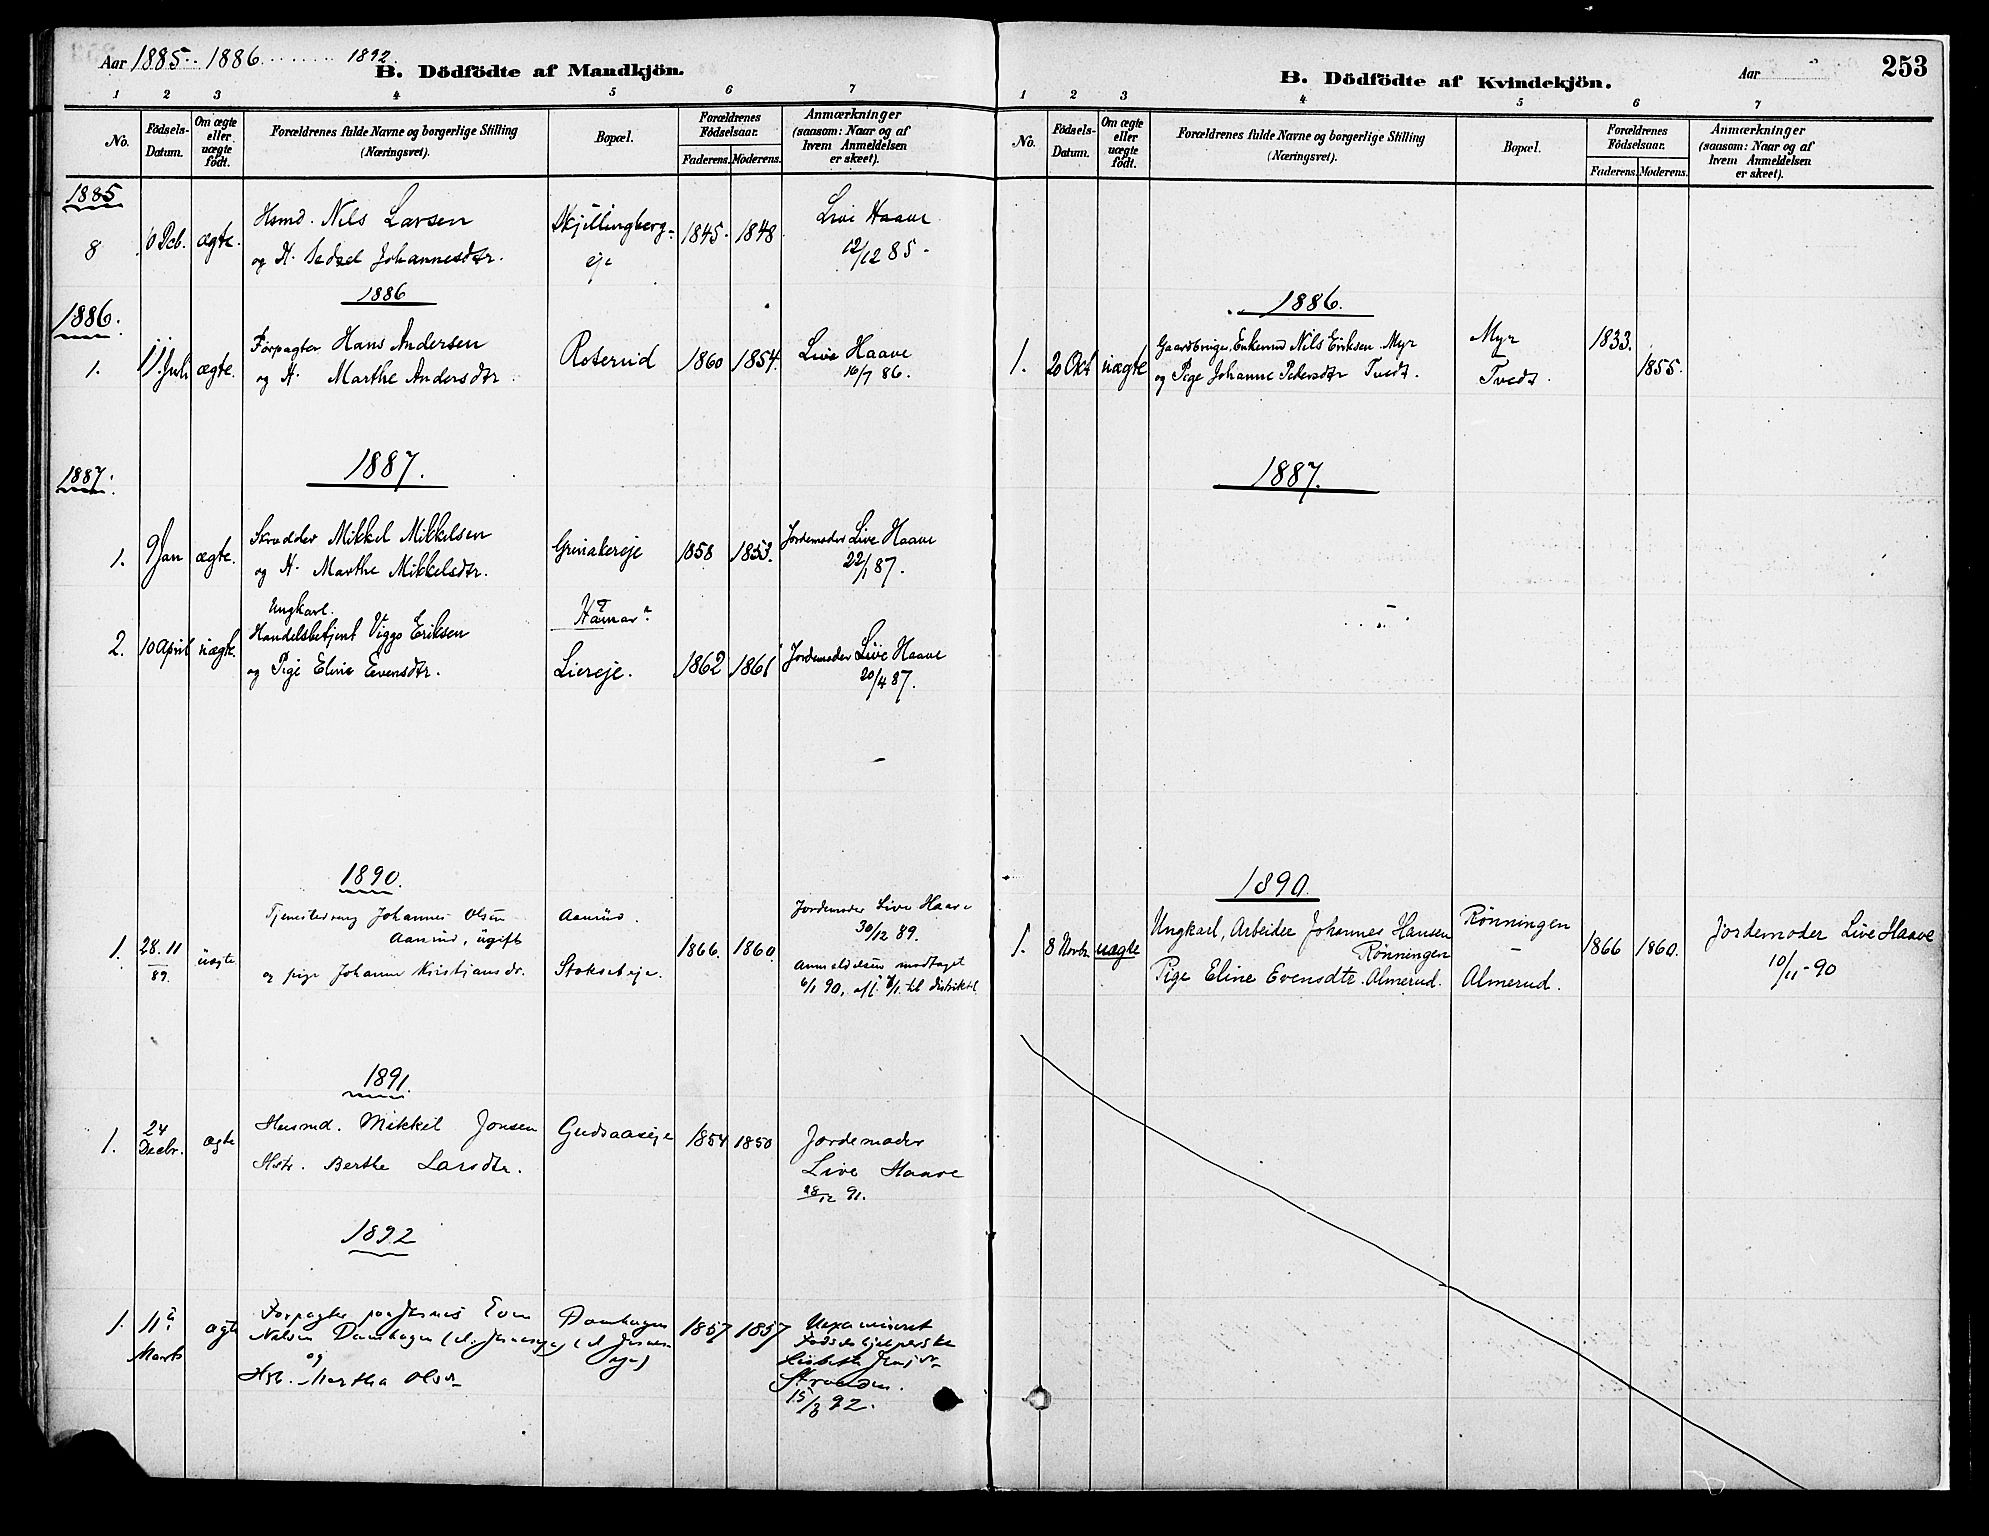 Aar 1885 .. 1886 ........ 1892.
B. Dödfödte af Mandkjön.
1 2 3 4 5 6 7
No.
Födsels-Datum.
Om ægte eller uægte födt.
Forældrenes fulde Navne og borgerlige Stilling (Næringsvei).
Bopæl.
Forældrenes Födselsaar.
Faderens. Moderens.
Anmærkninger (saasom: Naar og af hvem Anmeldelsen er skeet).
1885
8 10 Dcb. ægte. Hsmd. Nils Larsen Skjillingberg- 1845. 1848 Live Haave
og H. Sedsel Johannesdtr. eje 12/12 85 -
1886
1886.
1. 11. Juli ægte. Forpagter Hans Andersen Roterud 1860 1854. Live Haave
og H. Marthe Andersdtr. 16/7 86.
1887.
1887.
1. 9 Jan ægte. Skrædder Mikkel Mikkelsen Grinakereje 1858 1853. Jordemoder Live Haave
og H. Marthe Mikkelsdtr. 22/1 87.
Ungkarl.
2. 10 April uægte. Handelsbetjent Viggo Eriksen Hamar?
og Pige Eline Evensdtr. Liereje. 1862 1861 Jordemoder Live Haave
20/4 87.
1890.
1. 28.11 89. uægte Tjenestedreng Johannes Olsen Aamrud. 1866. 1860. Jordemoder Live Haave
Aamrud, ugift 30/12 89.
og pige Johanne Kristjansdr. Stokseteje. Anmeldelsen modtaget
6/1 90, afl. 8/1 til distriktsl.
1891.
1. 24 Decbr. ægte Husmd. Mikkel Jonsen Gudsaaseje 1854 1850 Jordemoder
Hstr. Berthe Larsdtr. Live Haave
28/12 91.
1892
1. 11te Marts ægte Forpagter paa Even Damhagen 1857 1857 Uexamineret
Nilsen Damhagen Fødselshjelperske
og
Hst. Martha Olsdr Lisbeth Jensdr
Stranden.
15/3 92.
253
B. Dödfödte af Kvindekjön.
Aar
1 2 3 4 5 6 7
No.
Födsels-Datum.
Om ægte eller uægte födt.
Forældrenes fulde Navne og borgerlige Stilling (Næringsvei).
Bopæl.
Forældrenes Födselsaar.
Faderens. Moderens.
Anmærkninger (saasom: Naar og af hvem Anmeldelsen er skeet).
1886.
1. 20 Okt uægte Gaardbruger, Enkemd Nils Eriksen Myr Myr 1833.
og Pige Johanne Pedersdtr Tvedt. Tvedt. 1855.
1887.
1890.
1. 8 Novbr. uægte Ungkarl, Arbeider Johannes Hansen Rønningen 1866 1860. Jordemoder Live Haave
Rønningen 10/11 - 90
Pige Eline Evensdtr. Almerud. Almerud.